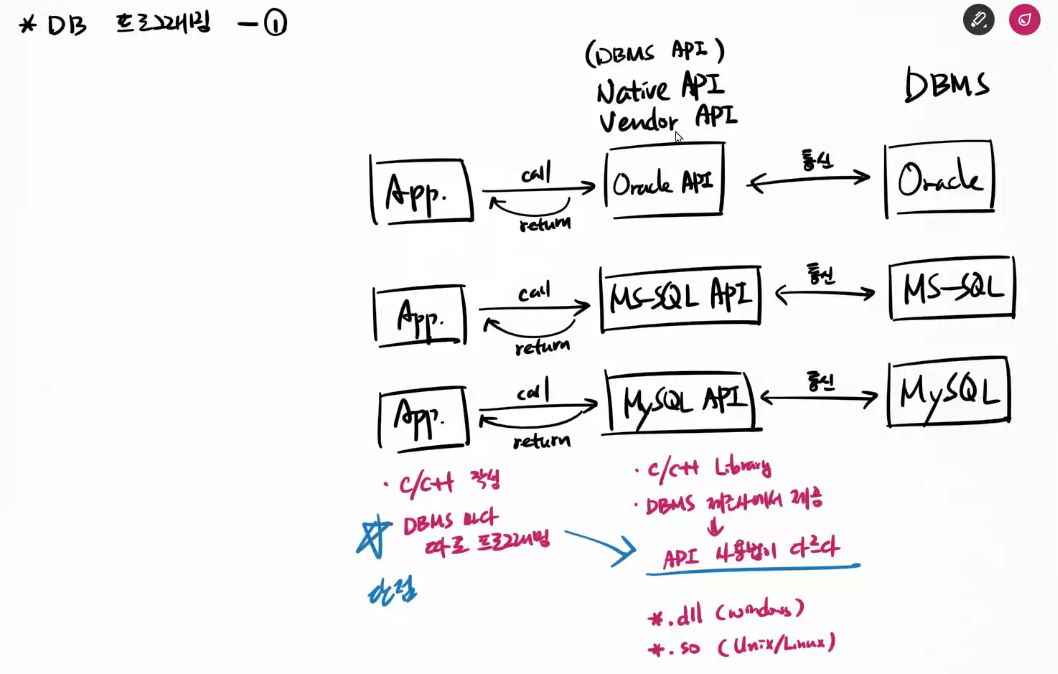 * DB 프로그래밍 - ①
(DBMS API)
Native API
Vendor API
DBMS
App.
call
return
Oracle API
통신
Oracle
App.
call
return
MS-SQL API
통신
MS-SQL
App.
call
return
MySQL API
통신
MySQL
· C/C++ 작성
· DBMS 마다
따로 프로그래밍
단점
· C/C++ Library
· DBMS 제조사에서 제공
↓
API 사용법이 다르다
*.dll (windows)
*.so (Unix/Linux)